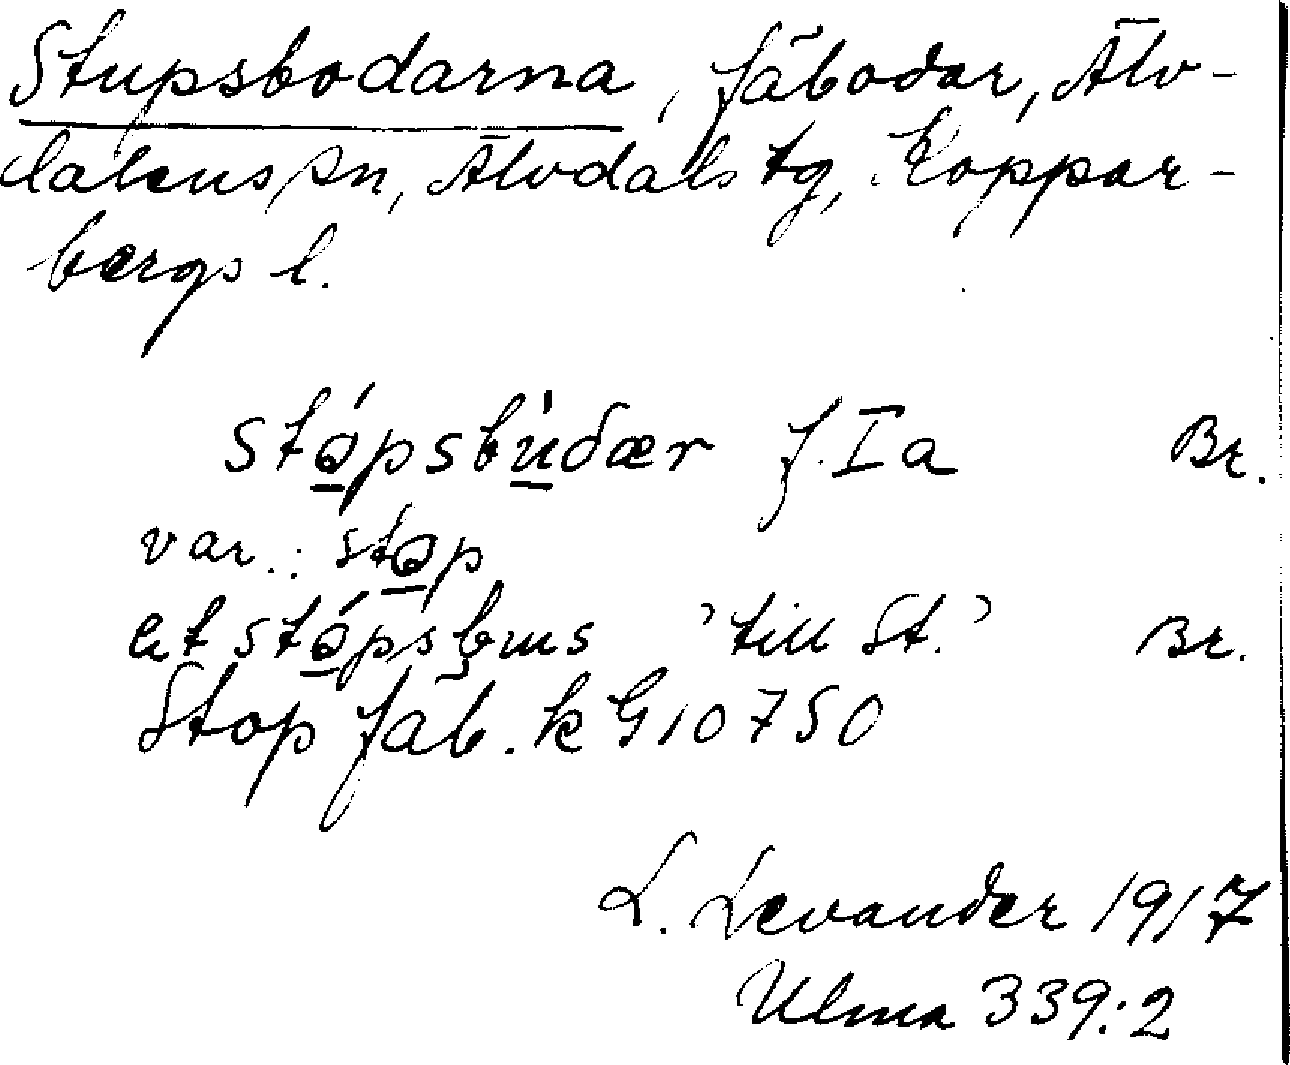 Stupsbodarna, fäbodar, Älv-
dalens sn, Älvdals tg, Koppar-
bergs l.
stópsbùdær f. I a Br.
var.: stop
at stópsbuɯs 'till St.' Br.
Stop fäb. k G10750
L. Levander 1917
Ulma 339:2